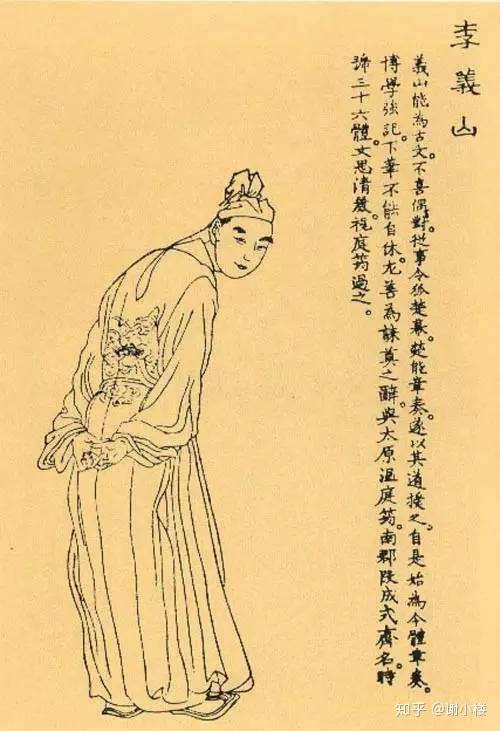 李義山
義山能為古文。不喜偶對。從事令狐楚幕。楚能章奏。遂以其道授之。自是始為今體章奏。
博學強記。下筆不能自休。尤善為誄奠之辭。與太原溫庭筠。南郡段成式齊名。時
號三十六體。文思清麗。視庭筠過之。
知乎 @谢小楼